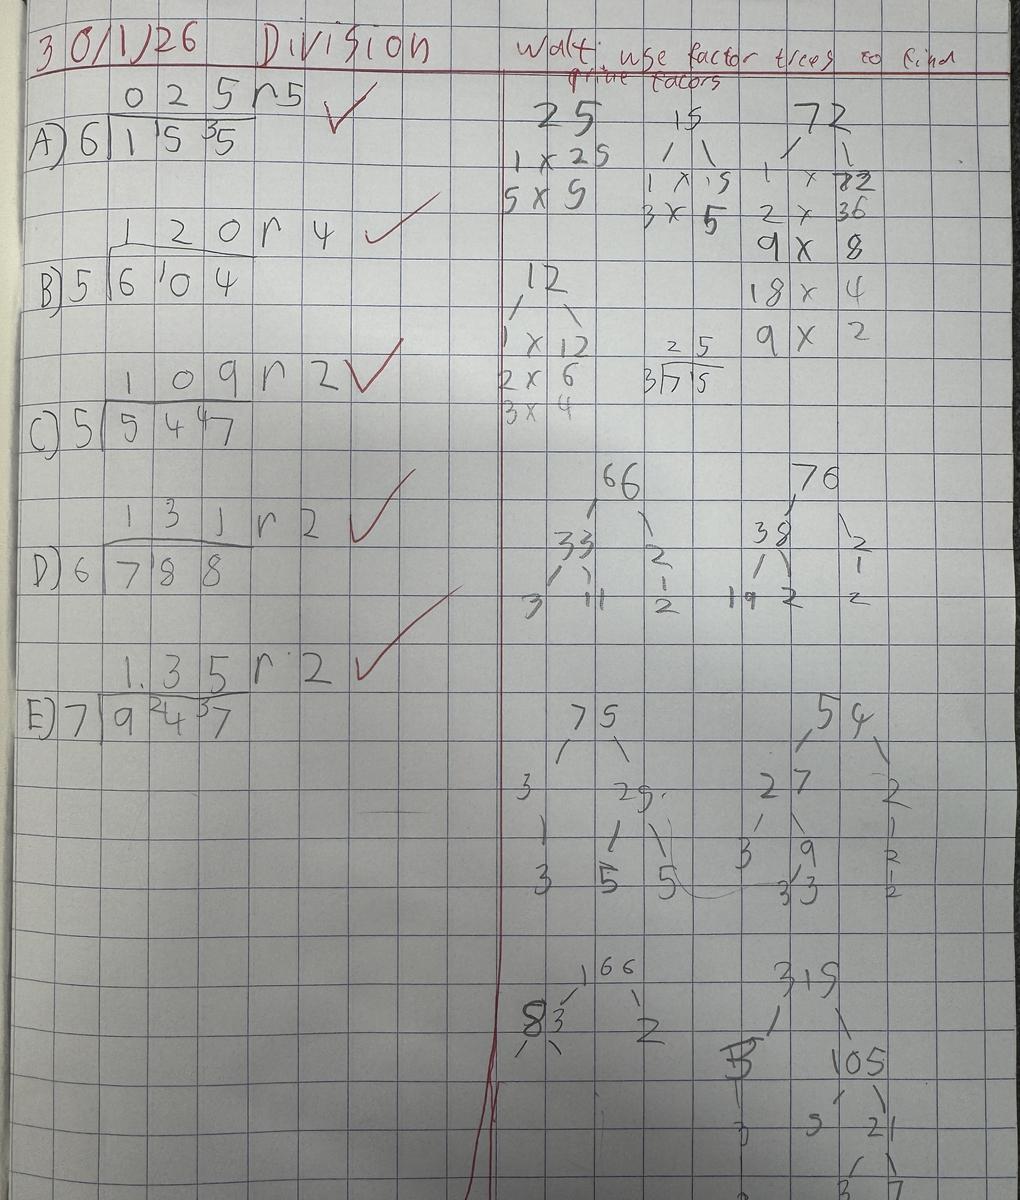 30/1/26 Division
0 2 5 r5
A) 6 1 5 35
1 2 0 r 4
B) 5 6 10 4
1 0 9 r 2
C) 5 5 4 47
1 3 1 r 2
D) 6 7 18 8
1. 3 5 r 2
E) 7 9 24 37
Walt: use factor trees to find
prime facors
25
1 x 25
5 x 5
15
1 x 15
3 x 5
72
1 x 72
2 x 36
9 x 8
18 x 4
9 x 2
12
1 x 12
2 x 6
3 x 4
2 5
3 7 15
66
33 2
3 11 2
76
38 2
19 2 2
75
3 25
3 5 5
54
27 2
3 9 2
3 3 2
166
83 2
315
3 105
3 5 21
3 7